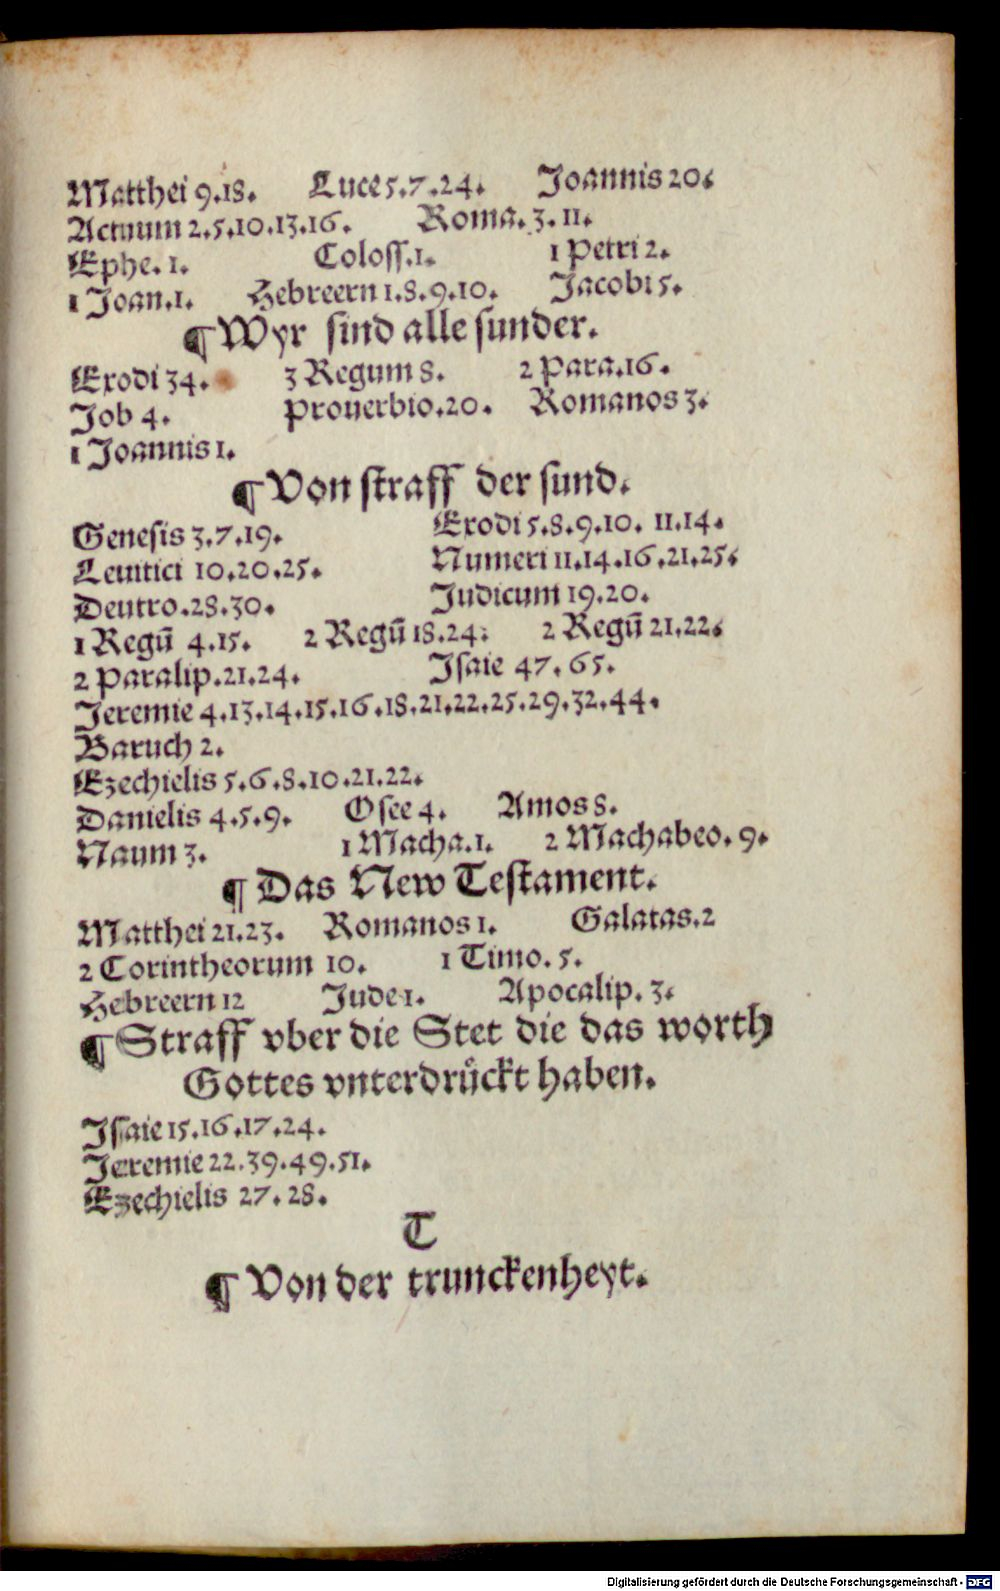 Matthei 9.18. Luce 5.7.24. Joannis 20.
Actuum 2.5.10.13.16. Roma. 3.11.
Ephe. 1. Coloss.1. 1 Petri 2.
1 Joan.1. Hebreern 1.8.9.10. Jacobi 5.
¶ Wyr sind alle sunder.
Exodi 34. 3 Regum 8. 2 Para.16.
Job 4. Prouerbio.20. Romanos 3.
1 Joannis 1.
¶ Von straff der sund.
Genesis 3.7.19. Exodi 5.8.9.10. 11.14.
Leuitici 10.20.25. Numeri 11.14.16.21.25.
Deutro.28.30. Judicum 19.20.
1 Regū 4.15. 2 Regū 18.24. 2 Regū 21.22.
2 Paralip.21.24. Isaie 47. 65.
Jeremie 4.13.14.15.16.18.21.22.25.29.32.44.
Baruch 2.
Ezechielis 5.6.8.10.21.22.
Danielis 4.5.9. Osee 4. Amos 8.
Naum 3. 1 Macha.1. 2 Machabeo. 9.
¶ Das New Testament.
Matthei 21.23. Romanos 1. Galatas.2
2 Corintheorum 10. 1 Timo. 5.
Hebreern 12 Jude 1. Apocalip. 3.
¶ Straff vber die Stet die das worth
Gottes vnterdrůckt haben.
Isaie 15.16.17.24.
Jeremie 22.39.49.51.
Ezechielis 27. 28.
T
¶ Von der trunckenheyt.
Digitalisierung gefördert durch die Deutsche Forschungsgemeinschaft - DFG